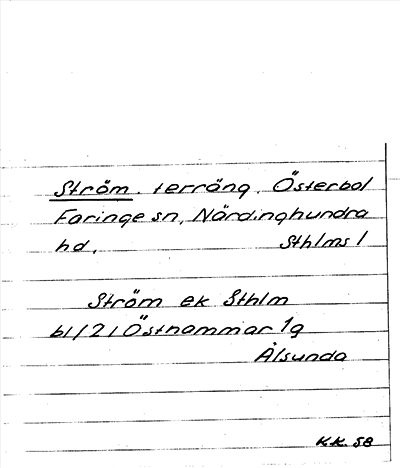 Ström. terräng. Österbol
Faringe sn, Närdinghundra
hd. Sthlms l
Ström ek Sthlm
bl/21 Östhammar 1g
Ålsunda
K.K. 58